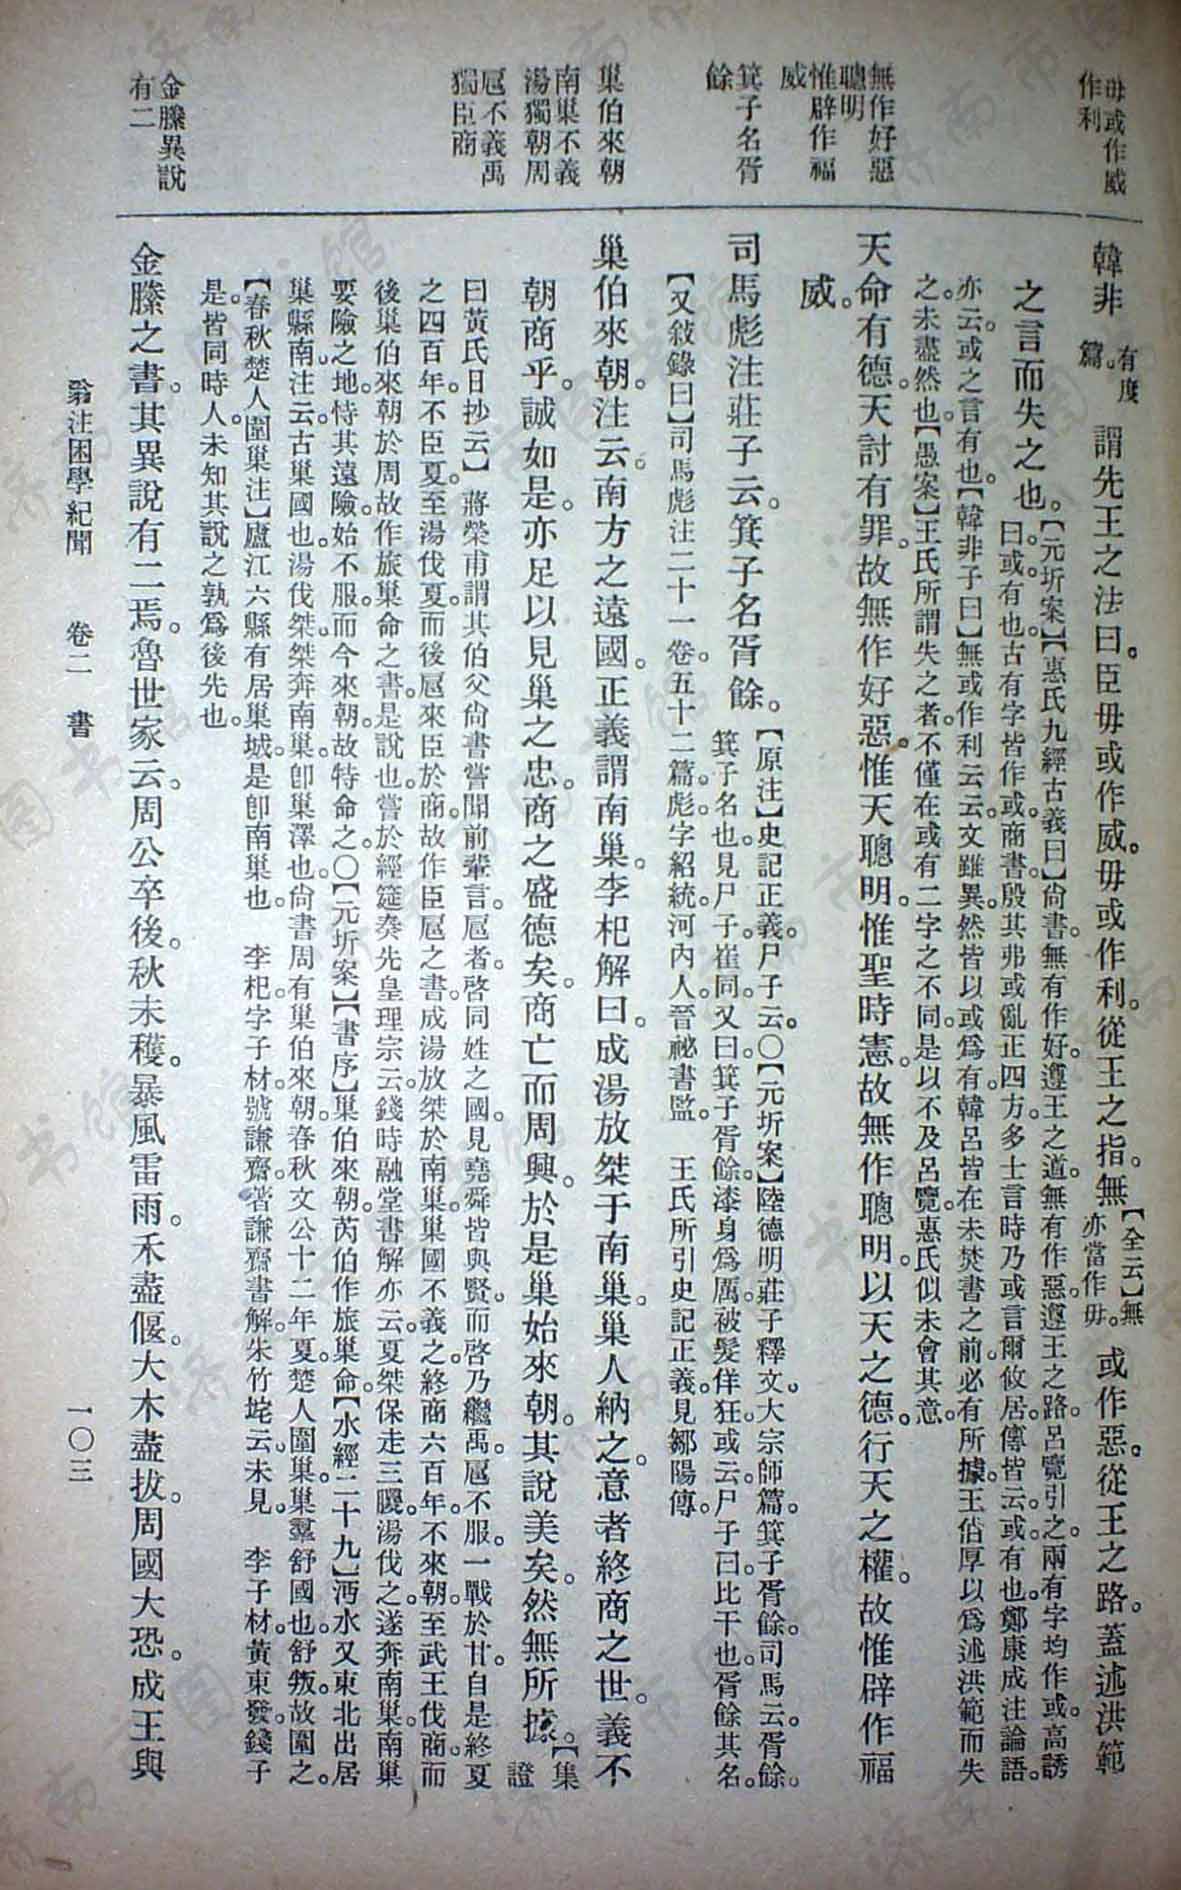 毋或作威
作利
無作好惡
聰明
惟辟作福
威
箕子名胥
餘
巢伯來朝
南巢不義
湯獨朝周
扈不義禹
獨臣商
金縢異說
有二
韓非
有度
篇。
謂先王之法曰。臣毋或作威。毋或作利。從王之指。無
【全云】無
亦當作毋。
或作惡。從王之路。蓋述洪範
之言而失之也。
【元圻案】【惠氏九經古義曰】尙書。無有作好。遵王之道。無有作惡。遵王之路。呂覽引之。兩有字均作或。高誘
曰。或。有也。古有字皆作或。商書。殷其弗或亂正四方。多士言時乃或言爾攸居。傳皆云。或。有也。鄭康成注論語。
亦云。或之言有也。【韓非子曰】無或作利云云。文雖異。然皆以或爲有。韓呂皆在未焚書之前。必有所據。王伯厚以爲述洪範而失
之。未盡然也。【愚案】王氏所謂失之者。不僅在或有二字之不同。是以不及呂覽。惠氏似未會其意。
天命有德。天討有罪。故無作好惡。惟天聰明。惟聖時憲。故無作聰明。以天之德。行天之權。故惟辟作福
威。
司馬彪注莊子云。箕子名胥餘。
【原注】史記正義。尸子云。〇【元圻案】陸德明莊子釋文。大宗師篇。箕子胥餘。司馬云。胥餘。
箕子名也。見尸子。崔同。又曰。箕子胥餘。漆身爲厲。被髮佯狂。或云。尸子曰。比干也。胥餘其名。
【又敍錄曰】司馬彪注二十一卷。五十二篇。彪。字紹統。河內人。晉祕書監。　王氏所引史記正義。見鄒陽傳。
巢伯來朝。注云。南方之遠國。正義謂南巢。李杞解曰。成湯放桀于南巢。巢人納之。意者終商之世。義不
朝商乎。誠如是。亦足以見巢之忠。商之盛德矣。商亡而周興。於是巢始來朝。其說美矣。然無所據。
【集
證
曰黃氏日抄云】蔣榮甫謂其伯父尙書嘗聞前輩言。扈者。啓同姓之國。見堯舜皆與賢。而啓乃繼禹。扈不服。一戰於甘。自是終夏
之四百年。不臣夏。至湯伐夏。而後扈來臣於商。故作臣扈之書。成湯放桀於南巢。巢國不義之。終商六百年。不來朝。至武王伐商。而
後巢伯來朝於周。故作旅巢命之書。是說也。嘗於經筵奏先皇理宗云。錢時融堂書解亦云。夏桀保走三朡。湯伐之。遂奔南巢。南巢
要險之地。恃其遠險。始不服。而今來朝。故特命之。〇【元圻案】【書序】巢伯來朝。芮伯作旅巢命。【水經二十九】沔水又東北出居
巢縣南。注云。古巢國也。湯伐桀。桀奔南巢。卽巢澤也。尙書。周有巢伯來朝。春秋文公十二年夏。楚人圍巢。巢羣舒國也。舒叛。故圍之。
【春秋楚人圍巢注】廬江六縣有居巢城。是卽南巢也。　李杞。字子材。號謙齋。著謙齋書解。朱竹垞云。未見。　李子材。黃東發。錢子
是。皆同時人。未知其說之孰爲後先也。
金縢之書。其異說有二焉。魯世家云。周公卒後。秋未穫。暴風雷雨。禾盡偃。大木盡拔。周國大恐。成王與
翁注困學紀聞　卷二　書　一〇三